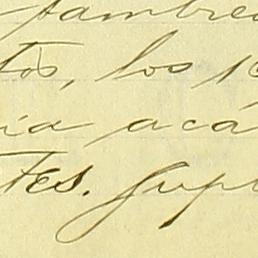 tambre
tos, los 16
ia acá
tes. Supl